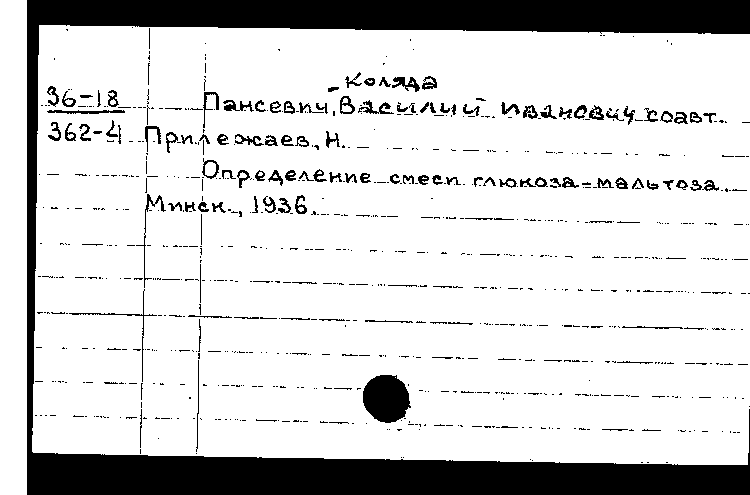 -Коляда
36-18 Пансевич, Василий Иванович соавт.
362-4 Прилежаев, Н.
Определение смеси глюкоза-мальтоза.
Минск, 1936.